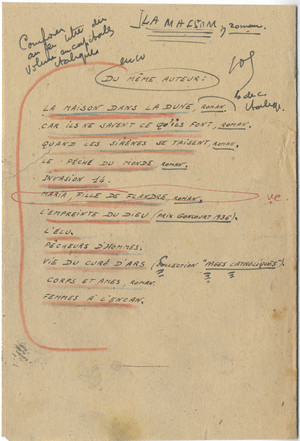 LA MAISON, roman.
Composer
au
titre du
volume en capitales
italiques
DU MÊME AUTEUR:
LA MAISON DANS LA DUNE, ROMAN.
CAR ILS NE SAVENT CE QU'ILS FONT, ROMAN.
QUAND LES SIRÈNES SE TAISENT, ROMAN.
LE PÊCHÉ DU MONDE, ROMAN.
INVASION 14.
MARIA, FILLE DE FLANDRE, ROMAN.
L'EMPREINTE DU DIEU (PRIX GONCOURT 1936).
L'ELU.
PÊCHEURS D'HOMMES.
VIE DU CURÉ D'ARS (COLLECTION "PAGES CATHOLIQUES").
CORPS ET AMES, ROMAN.
FEMMES A L'ENCAN.